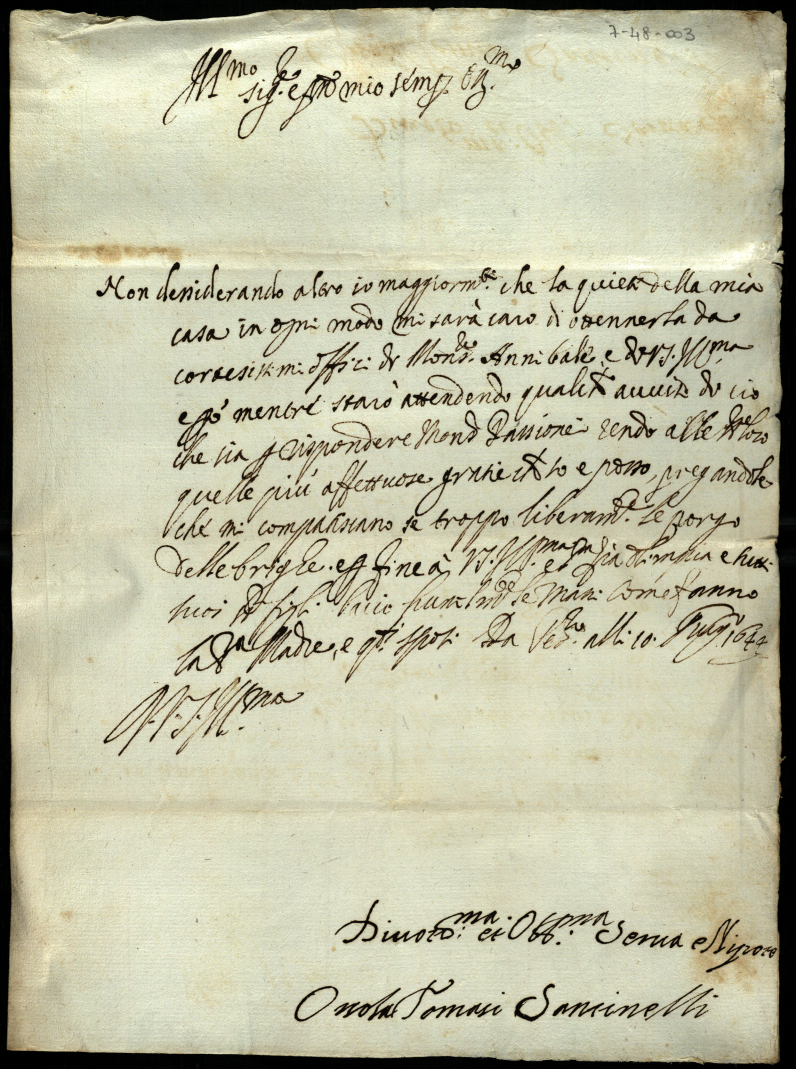 7-48-003
Ill.mo
sig.re e pron mio semp. oss.mo
Non desiderando altro io maggiorm.te che la quiete della mia
casa in ogni modo mi sarà caro di ottennerla da
cortesissimi offici di Mons.re Annibale e di V.S. Ill.ma
e però mentre starò attendendo qualche auuiso di ciò
che sia p rispondere Mons Passionei rendo alle loro
quelle più affettuose gratie ch'io so e posso, pregandole
che mi compatiscano se troppo liberam.te le porgo
delle brighe. e p fine à V.S. Ill.ma et Sig.ra Zia Olimpia e tutti
suoi SS.ri figli bacio riuerente le mani come fanno
la S.ra Madre, e q.ti sposi. Da alli 10. 1644
D. V. S. Ill.ma
Diuot.ma et Obb.ma Serua e Nipote
Tomasi Santinelli